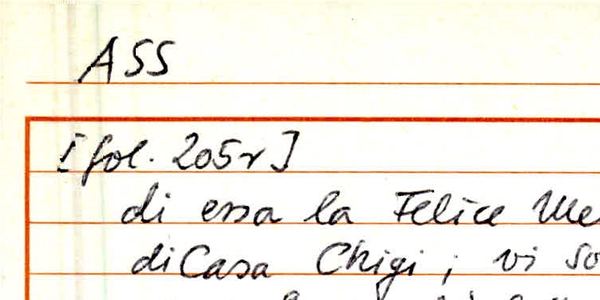 ASS
[fol. 205r]
di essa la Felice
di Casa Chigi ; vi